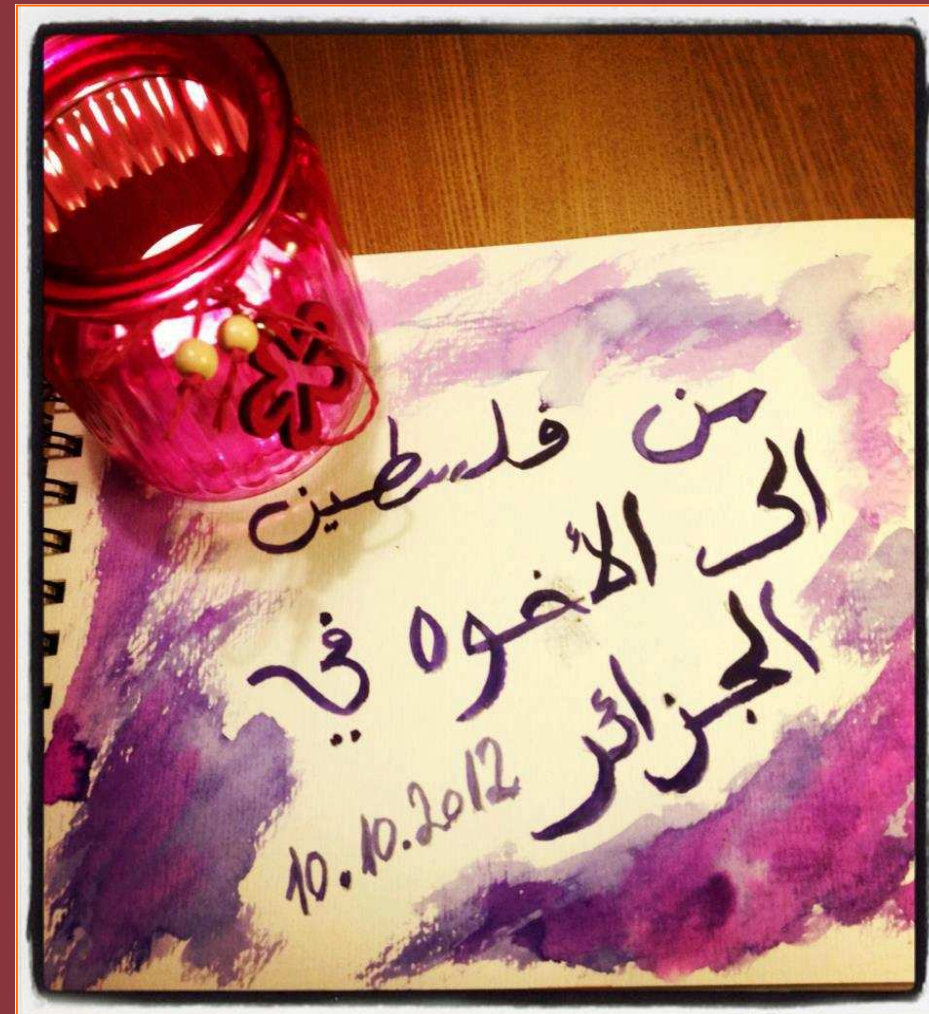 من فلسطين
الى الأخوه في
الجزائر
10.10.2012